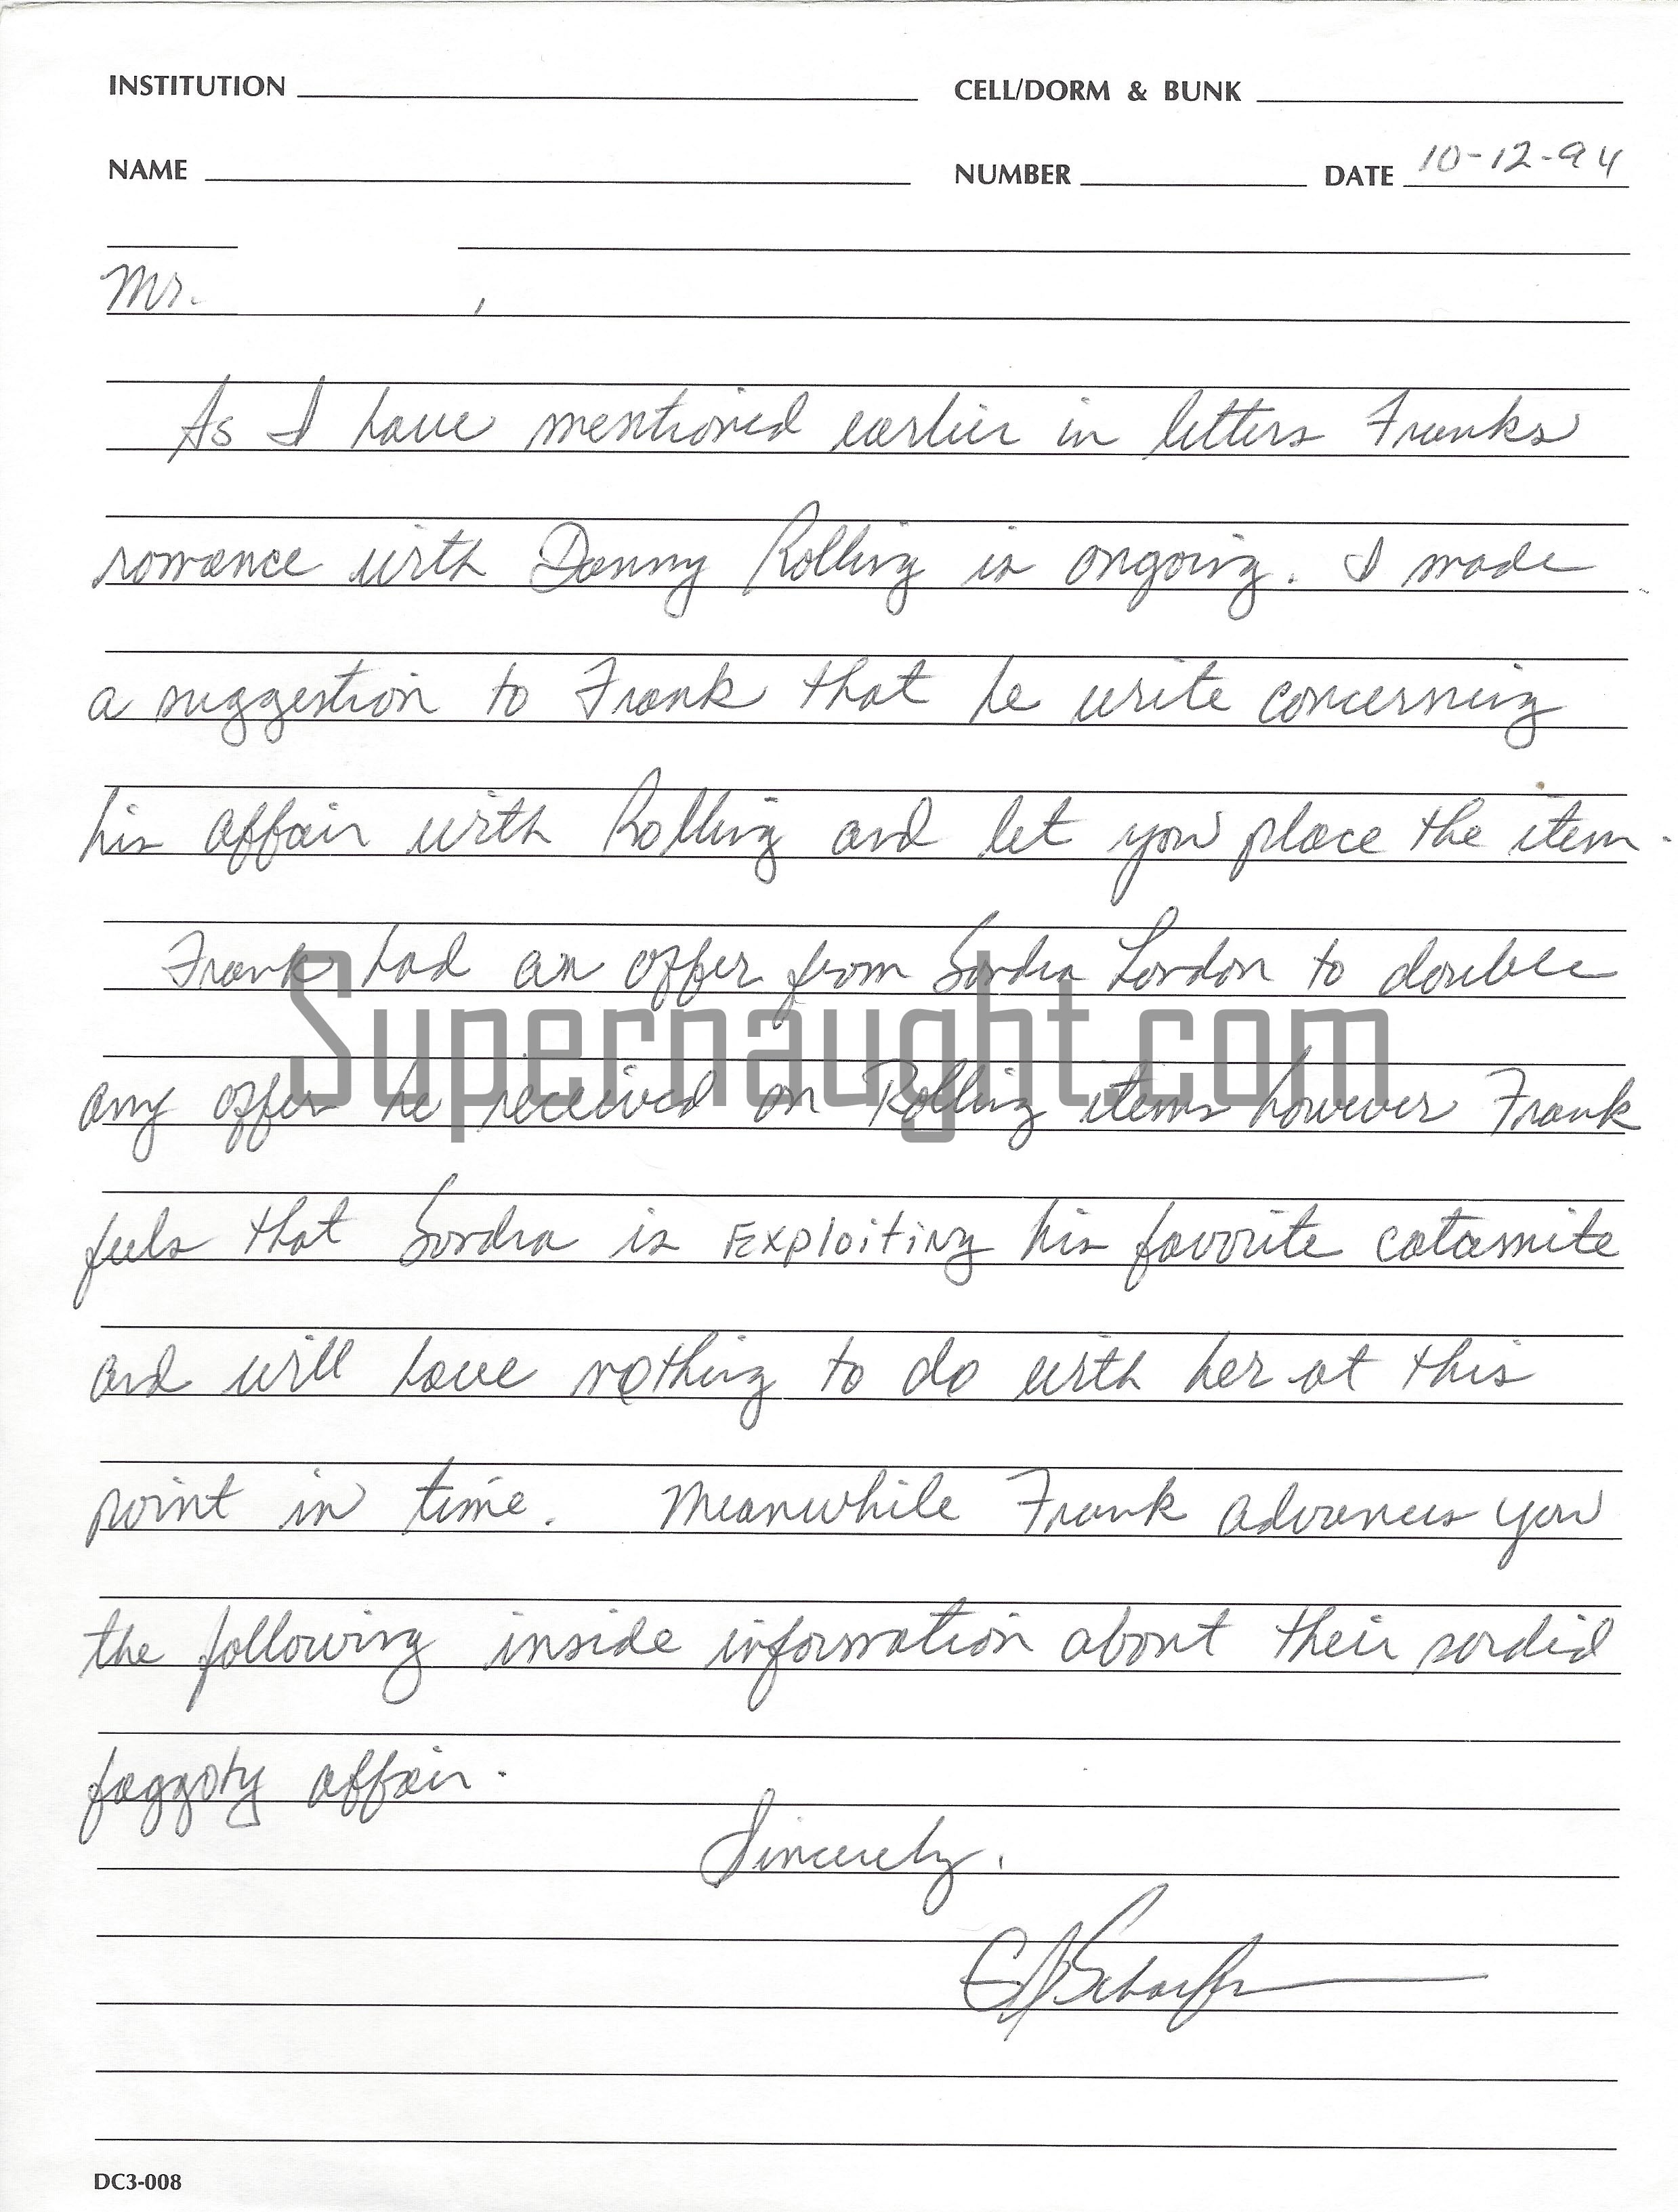 INSTITUTION CELL/DORM & BUNK
NAME NUMBER DATE 10-12-94
Mr. ,
As I have mentioned earlier in letters Franks
romance with Danny Rolling is ongoing. I made
a suggestion to Frank that he write concerning
his affair with Rolling and let you place the item.
Frank had an offer from Sondra London to double
any offer he received on Rolling items however Frank
feels that Sondra is Exploiting his favorite catamite
and will have nothing to do with her at this
point in time. Meanwhile Frank advances you
the following inside information about their sordid
faggoty affair.
Sincerely,
GJSchaefer
DC3-008
Supernaught.com